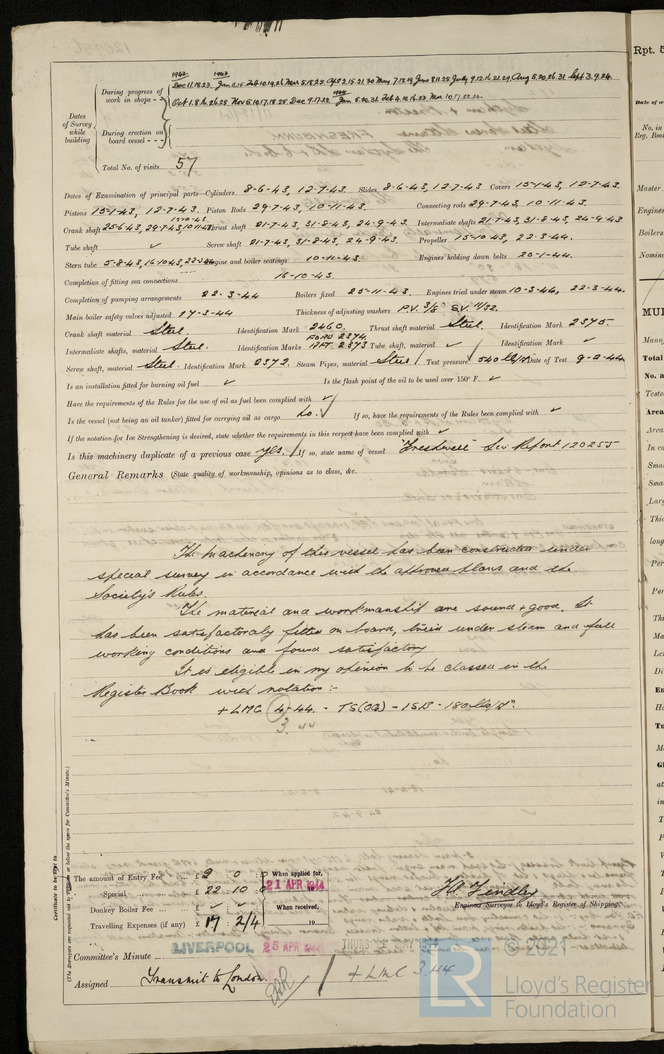 1942 1943
During progress of work in shops - - Dec 11.18.23 Jan 6.15 Feb 10.19.26 Mar 5.18.25 Apr 2.15.21.30 May 7.12.19 June 8.11.25 July 9.12.16.21.29 Aug 5.20.26.31 Sept 3.9.24
1944
Oct 1.8.16.26.28 Nov 5.10.17.18.25 Dec 9.17.22 Jan 5.20.31 Feb 4.10.16.23 Mar 10.17.22.24
Dates of Survey while building
During erection on board vessel - - -
Total No. of visits 57
Dates of Examination of principal parts—Cylinders 8-6-43, 12-7-43. Slides 8-6-43, 12-7-43 Covers 15-1-43, 12-7-43.
Pistons 15-1-43, 12-7-43. Piston Rods 29-7-43, 10-11-43. Connecting rods 29-7-43, 10-11-43.
15-10-43
Crank shaft 25-6-43, 29-7-43, 10-11-43 Thrust shaft 21-7-43, 31-8-43, 24-9-43. Intermediate shafts 21-7-43, 31-8-43, 24-9-43
Tube shaft ✓ Screw shaft 21-7-43, 31-8-43, 24-9-43. Propeller 15-10-43, 22-3-44.
Stern tube 5-8-43, 16-10-43, 22-3-44 Engine and boiler seatings 10-10-43. Engines holding down bolts 20-1-44.
Completion of fitting sea connections 16-10-43.
Completion of pumping arrangements 22-3-44 Boilers fixed 25-11-43. Engines tried under steam 10-3-44, 22-3-44.
Main boiler safety valves adjusted 17-3-44 Thickness of adjusting washers P.V. 3/8 S.V. 11/32.
Crank shaft material Steel. Identification Mark 2460. Thrust shaft material Steel. Identification Mark 2375.
Intermediate shafts, material Steel. Identification Marks FORD 2374 12FT. 2373 Tube shaft, material ✓ Identification Mark ✓
Screw shaft, material Steel. Identification Mark 2372. Steam Pipes, material Steel Test pressure 540 lb/□" Date of Test 9-2-44
Is an installation fitted for burning oil fuel ✓ Is the flash point of the oil to be used over 150° F. ✓
Have the requirements of the Rules for the use of oil as fuel been complied with ✓
Is the vessel (not being an oil tanker) fitted for carrying oil as cargo No. If so, have the requirements of the Rules been complied with ✓
If the notation for Ice Strengthening is desired, state whether the requirements in this respect have been complied with ✓
Is this machinery duplicate of a previous case Yes. If so, state name of vessel "Freshwell" Liv Report 120255
General Remarks (State quality of workmanship, opinions as to class, &c.
The machinery of this vessel has been constructed under
special survey in accordance with the approved plans and the
Society's Rules.
The material and workmanship are sound & good. It
has been satisfactorily fitted on board, tried under steam and full
working conditions and found satisfactory
It is eligible in my opinion to be classed in the
Register Book with notation :-
+ LMC 4-44. - TS(OG) - 1SB - 180 lb/□".
3. 44
Certificate to be sent to
(The Surveyors are requested not to write on or below the space for Committee's Minute.)
The amount of Entry Fee ... £ 2 : 0 : When applied for,
Special ... £ 22 : 10 : 0 21 APR 1944
Donkey Boiler Fee ... £ ✓ : ✓ : When received,
Travelling Expenses (if any) £ 17 : 2/4 19
H. Findley
Engineer Surveyor to Lloyd's Register of Shipping.
Committee's Minute LIVERPOOL 25 APR 1944 THURS MAY 1944
Assigned Transmit to London. + LMC 3.44
© 2021
LR
Lloyd's Register
Foundation
Rpt. 5
Date of
No. in
Reg. Boo
Master
Engines
Boilers
Nomin
MUL
Manu
Total
No. a
Teste
Area
Area
In ca
Smal
Smal
Larg
Thic
long
Per
Per